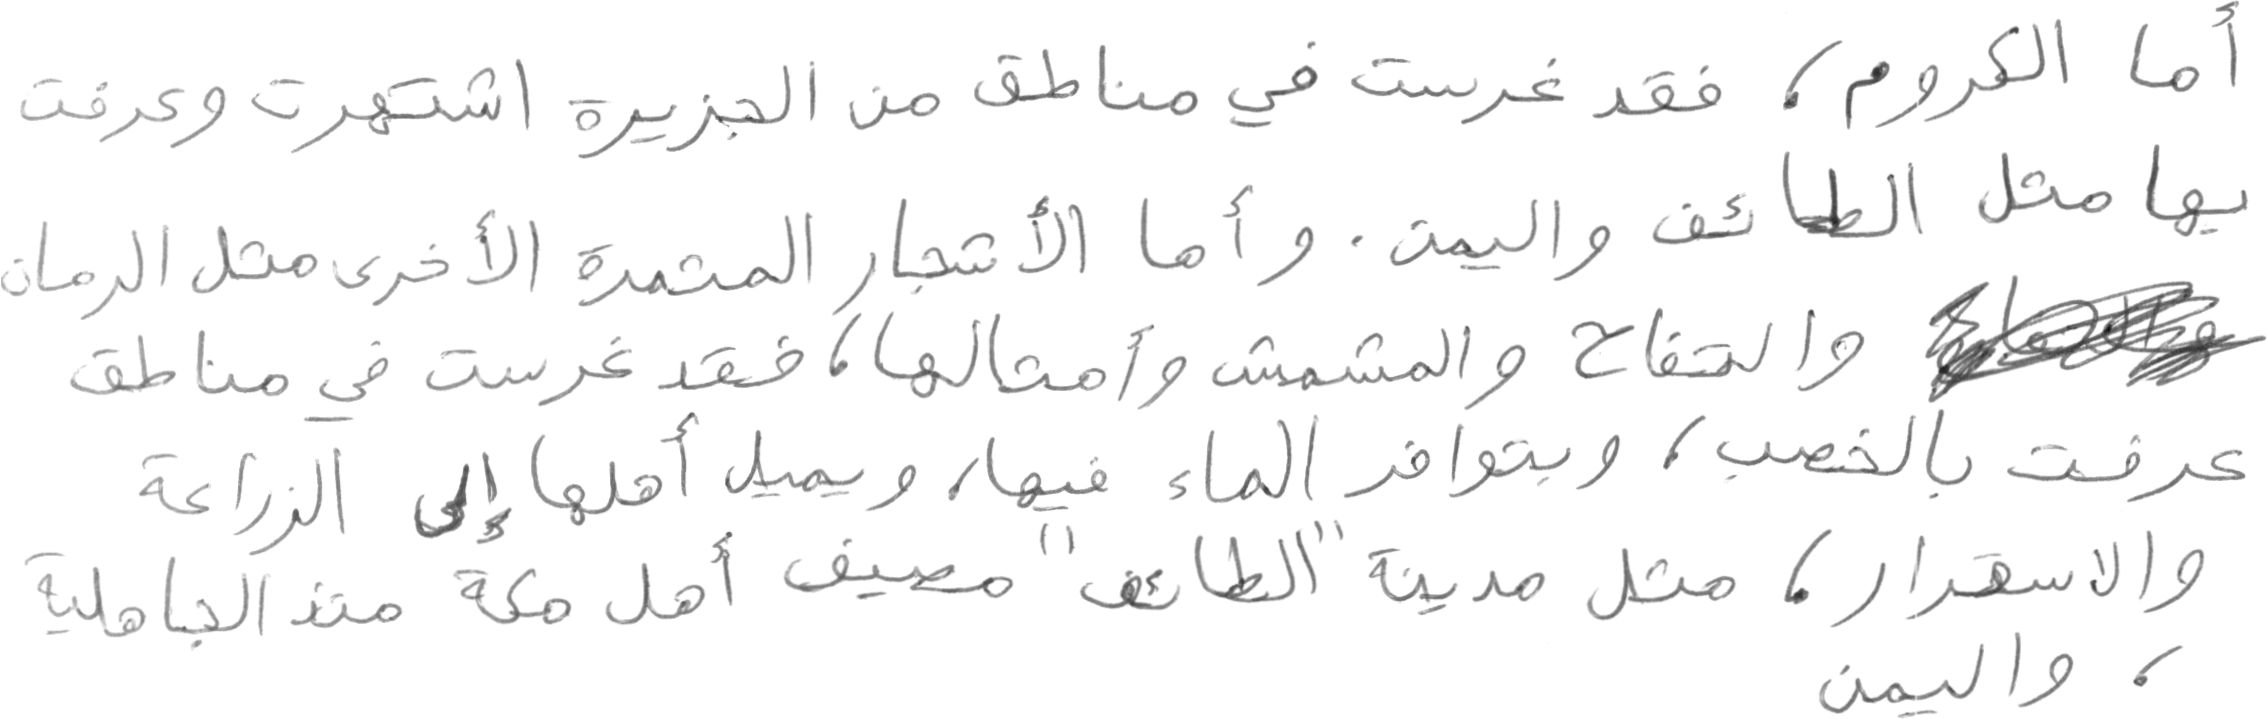 أما الكروم، فقد غرست في مناطق من الجزيرة اشتهرت وعرفت
بها مثل الطائف واليمن. وأما الأشجار المثمرة الأخرى مثل الرمان
والتفاح والمشمش وأمثالها، فقد غرست في مناطق
عرفت بالخصب، وبتوافر الماء فيها، ويميل أهلها إلى الزراعة
والاسقرار، مثل مدينة "الطائف" مصيف أهل مكة منذ الجاهلية
، واليمن